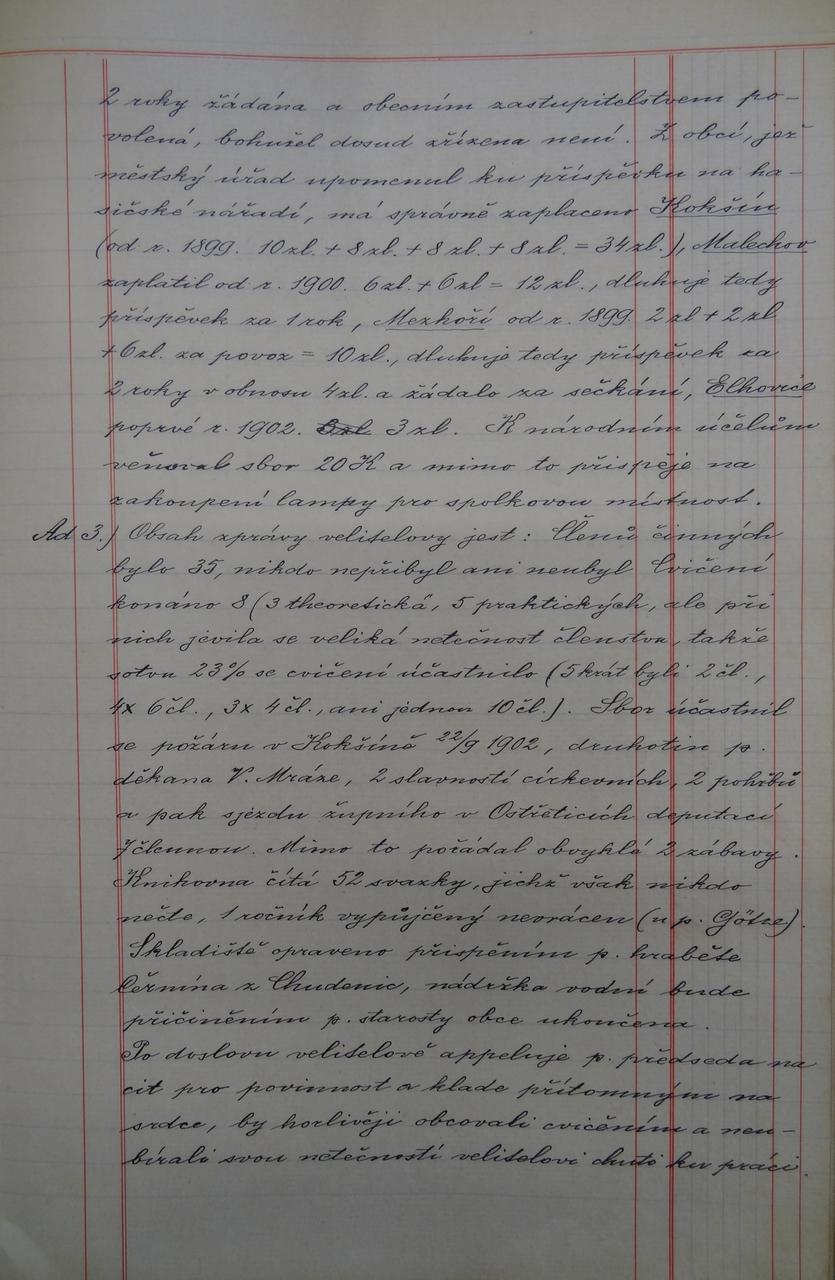 2 roky žádána a obecním zastupitelstvem po-
volená, bohužel dosud zřízena není. Z obcí, jež
městský úřad upomenul ku příspěvku na ha-
sičské nářadí, má správně zaplaceno Kokšín
(od r. 1899. 10 zl. + 8 zl. + 8 zl. + 8 zl. = 34 zl.), Malechov
zaplatil od r. 1900. 6 zl. + 6 zl = 12 zl., dluhuje tedy
příspěvek za 1 rok, Mezhoří od r. 1899. 2 zl + 2 zl
+ 6 zl. za povoz = 10 zl., dluhuje tedy příspěvek za
2 roky v obnosu 4 zl. a žádalo za sečkání, Elhovice
poprvé r. 1902. 3 zl. K národním účelům
věnoval sbor 20 K a mimo to přispěje na
zakoupení lampy pro spolkovou místnost.
Ad 3.) Obsah zprávy velitelovy jest: Členů činných
bylo 35, nikdo nepřibyl ani neubyl Cvičení
konáno 8 (3 theoretická, 5 praktických, ale při
nich jevila se veliká netečnost členstva, takže
sotva 23% se cvičení účastnilo (5 krát byli 2 čl.,
4x 6 čl., 3x 4 čl., ani jednou 10 čl.). Sbor účastnil
se požáru v Kokšíně 22/9 1902, druhotin p.
děkana V. Mráze, 2 slavností církevních, 2 pohřbů
a pak sjezdu župního v Ostřeticích deputací
7člennou. Mimo to pořádal obvyklé 2 zábavy.
Knihovna čítá 52 svazky, jichž však nikdo
nečte, 1 ročník vypůjčený nevrácen (u p. Götze).
Skladiště opraveno přispěním p. hraběte
Černína z Chudenic, nádržka vodní bude
přičiněním p. starosty obce ukončena.
Po doslovu velitelově appeluje p. předseda na
cit pro povinnost a klade přítomným na
srdce, by horlivěji obcovali cvičením a neu-
bírali svou netečností veliteli chuti ku práci.